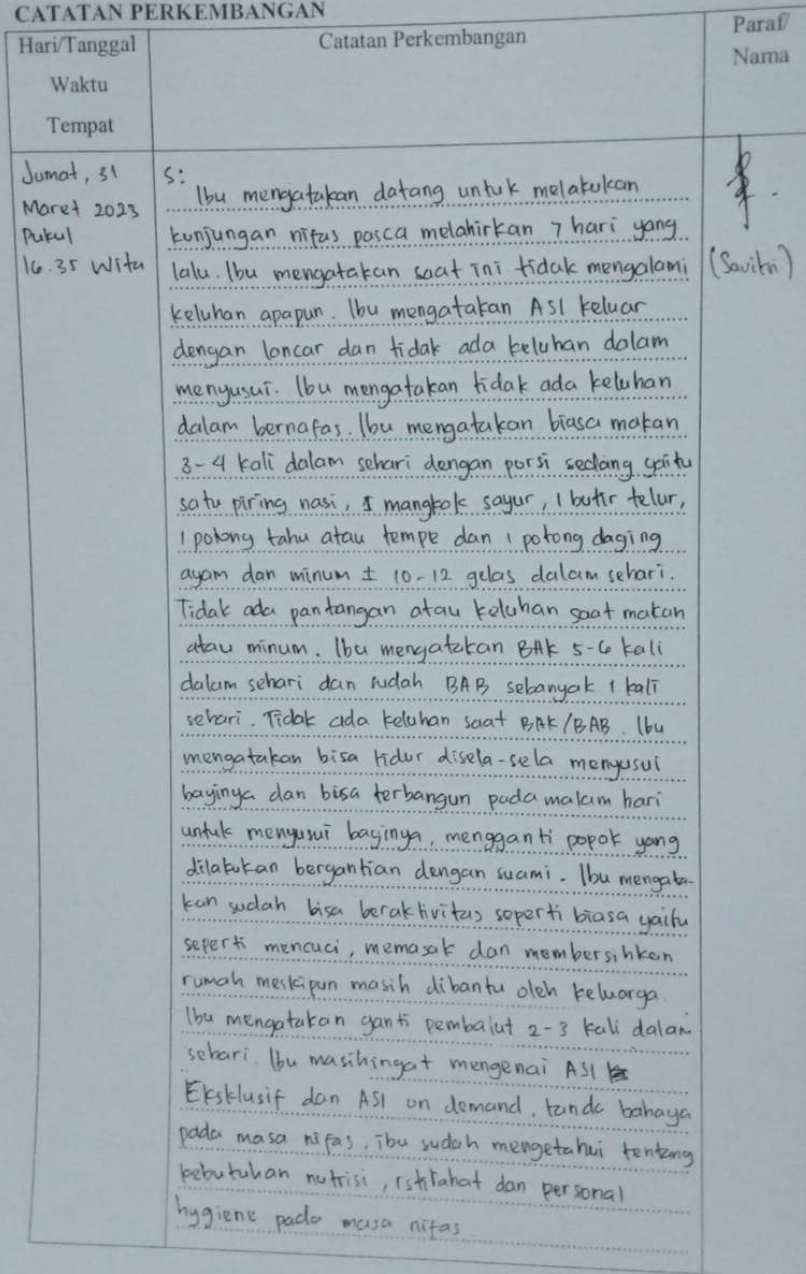 CATATAN PERKEMBANGAN
Hari/Tanggal
Waktu
Tempat
Catatan Perkembangan
Paraf/
Nama
Jumat, 31
Maret 2023
Pukul
16.35 Wita
S:
Ibu mengatakan datang untuk melakukan
kunjungan nifas pasca melahirkan 7 hari yang
lalu. Ibu mengatakan saat ini tidak mengalami
keluhan apapun. Ibu mengatakan ASI keluar
dengan lancar dan tidak ada keluhan dalam
menyusui. Ibu mengatakan tidak ada keluhan
dalam bernafas. Ibu mengatakan biasa makan
3-4 kali dalam sehari dengan porsi sedang yaitu
satu piring nasi, 1 mangkok sayur, 1 butir telur,
1 potong tahu atau tempe dan 1 potong daging
ayam dan minum ± 10-12 gelas dalam sehari.
Tidak ada pantangan atau keluhan saat makan
atau minum. Ibu mengatakan BAK 5-6 kali
dalam sehari dan sudah BAB sebanyak 1 kali
sehari. Tidak ada keluhan saat BAK/BAB. Ibu
mengatakan bisa tidur disela-sela menyusui
bayinya dan bisa terbangun pada malam hari
untuk menyusui bayinya, mengganti popok yang
dilakukan bergantian dengan suami. Ibu mengata-
kan sudah bisa beraktivitas seperti biasa yaitu
seperti mencuci, memasak dan membersihkan
rumah meskipun masih dibantu oleh keluarga.
Ibu mengatakan ganti pembalut 2-3 kali dalam
sehari. Ibu masihingat mengenai ASI
Eksklusif dan ASI on demand, tanda bahaya
pada masa nifas, ibu sudah mengetahui tentang
kebutuhan nutrisi, istirahat dan personal
hygiene pada masa nifas
(Savitri)